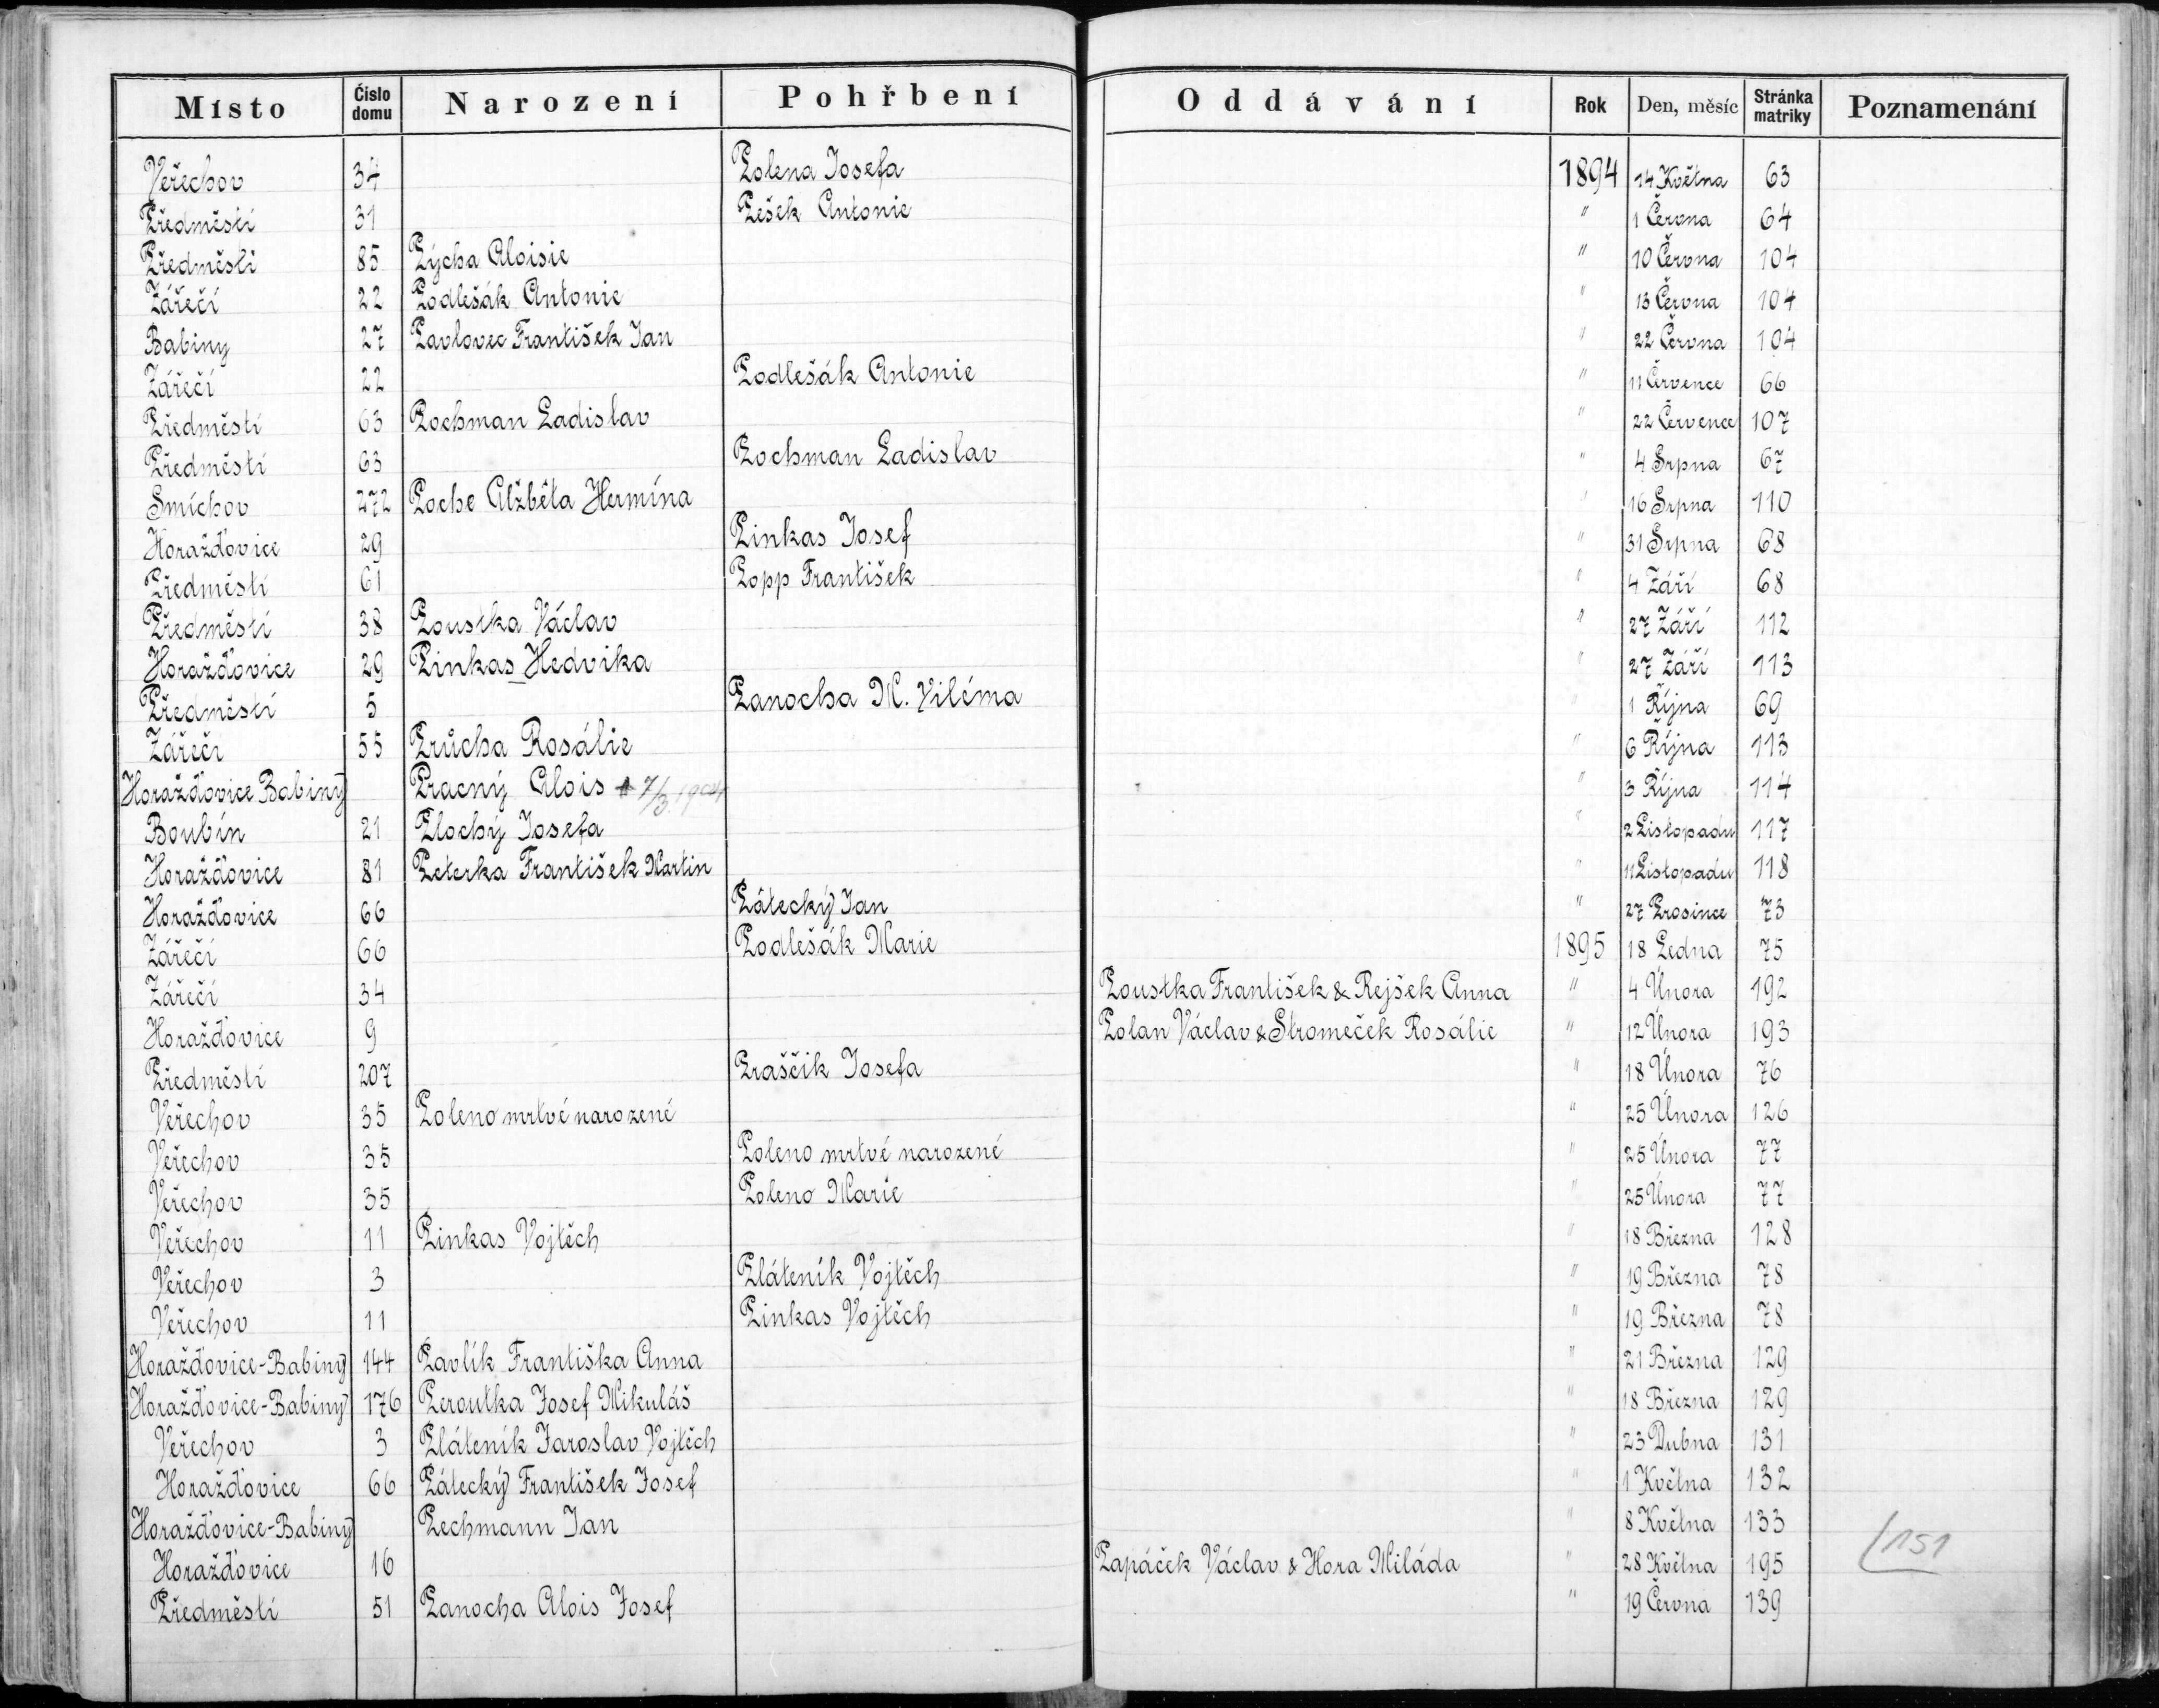 Místo Číslo domu Narození Pohřbení Oddávání Rok Den, měsíc Stránka matriky Poznamenání
Veřechov 34 Polena Josefa 1894 14 Května 63
Předměstí 31 Pešek Antonie " 1 Června 64
Předměstí 85 Pýcha Aloisie " 10 Června 104
Zářečí 22 Podlešák Antonie " 13 Června 104
Babiny 27 Pavlovec František Jan " 22 Června 104
Zářečí 22 Podlešák Antonie " 11 Července 66
Předměstí 63 Pochman Ladislav " 22 Července 107
Předměstí 63 Pochman Ladislav " 4 Srpna 67
Smíchov 272 Poche Alžběta Hermína " 16 Srpna 110
Horažďovice 29 Pinkas Josef " 31 Srpna 68
Předměstí 61 Popp František " 4 Září 68
Předměstí 38 Poustka Václav " 27 Září 112
Horažďovice 29 Pinkas Hedvika " 27 Září 113
Předměstí 5 Panocha M. Viléma " 1 Října 69
Zářečí 55 Průcha Rosálie " 6 Října 113
Horažďovice Babiny Pracný Alois 7/3. 1904 " 3 Října 114
Boubín 21 Plochý Josefa " 2 Listopadu 117
Horažďovice 81 Peterka František Martin " 11 Listopadu 118
Horažďovice 66 Pátecký Jan " 27 Prosince 73
Zářečí 66 Podlešák Marie 1895 18 Ledna 75
Zářečí 34 Poustka František & Rejšek Anna " 4 Února 192
Horažďovice 9 Polan Václav & Stromeček Rosálie " 12 Února 193
Předměstí 207 Praščik Josefa " 18 Února 76
Veřechov 35 Poleno mrtvé narozené " 25 Února 126
Veřechov 35 Poleno mrtvé narozené " 25 Února 77
Veřechov 35 Poleno Marie " 25 Února 77
Veřechov 11 Pinkas Vojtěch " 18 Března 128
Veřechov 3 Pláteník Vojtěch " 19 Března 78
Veřechov 11 Pinkas Vojtěch " 19 Března 78
Horažďovice-Babiny 144 Pavlík Františka Anna " 21 Března 129
Horažďovice-Babiny 176 Peroutka Josef Mikuláš " 18 Března 129
Veřechov 3 Pláteník Jaroslav Vojtěch " 23 Dubna 131
Horažďovice 66 Pátecký František Josef " 1 Května 132
Horažďovice-Babiny Pechmann Jan " 8 Května 133
Horažďovice 16 Papáček Václav & Hora Miláda " 28 Května 195 151
Předměstí 51 Panocha Alois Josef " 19 Června 139